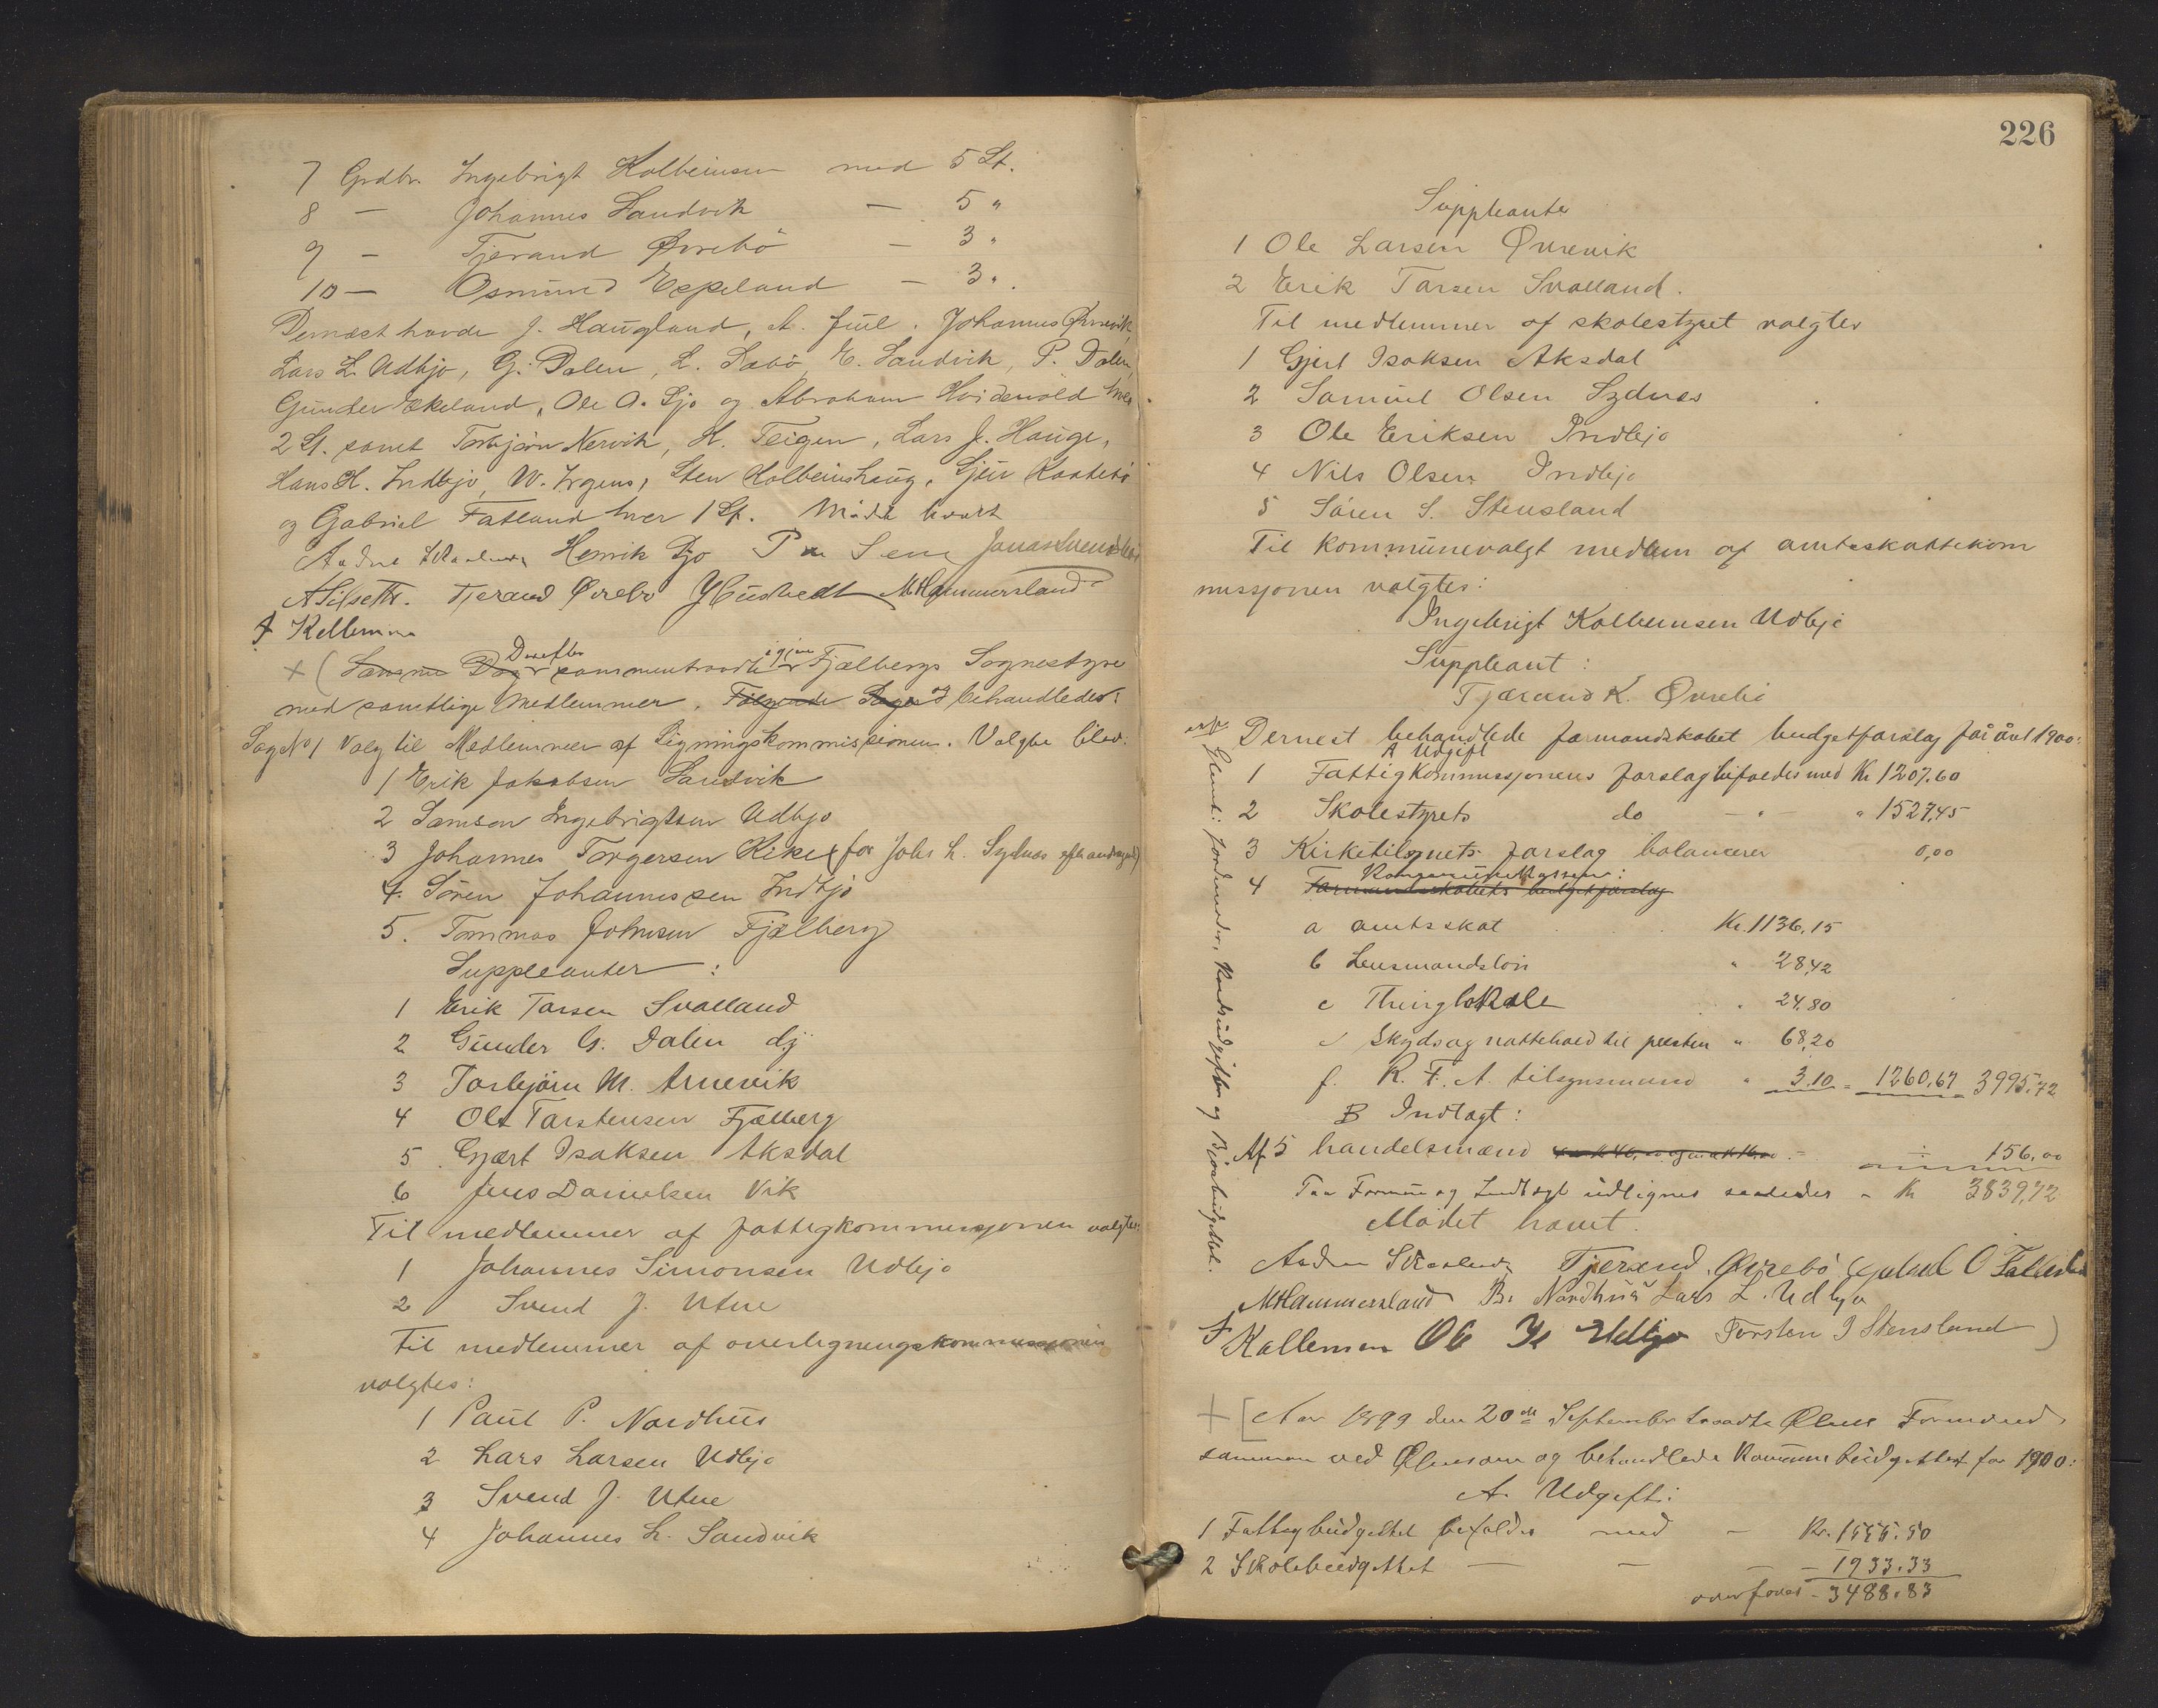 7 Grdbr. Ingebrigt Kolbeinsen med 5 St.
8 — Johannes Sandvik — 5 "
9 — Tjerand Øvrebö — 3 "
10 — Osmund Espeland — 3 ".
Dernæst havde J. Haugland, A. Juul. Johannes Ørnevik,
Lars L. Udbjo, G. Dalen, L. Søbö, E. Sandvik, P. Dalen,
Gunder Ekeland, Ole O. Ljo og Abraham Hvidevold hver
2 St. samt Torbjörn Nervik, K. Teigen, Lars J. Hauge,
Hans H. Indbjo, W. Irgens, Sten Kolbeinshaug, Sjur Kaatebö
og Gabriel Fatland hver 1 St. Mödet hævet
Aadne Henrik Ljo P Sem Jonas
A Silseth. Tjerand Övrebö M Hammersland
J Kallemen
+ ( Samme Dag Derefter sammentraadte igjen Fjælbergs Sognestyre
med samtlige Medlemmer. Følgende Sager og behandledes:
Sag No 1 Valg til Medlemmer af Ligningskommissionen. Valgte blev:
1 Erik Jakobsen Sandvik
2 Samson Ingebrigtsen Udbjo
3 Johannes Torgersen Kike (for Johs L. Sydnes efter andragende)
4. Sören Johannessen Indbjo
5. Tommas Johnsen Fjælberg
Suppleanter:
1 Erik Tarsen Svalland
2 Gunder G. Dalen d.y
3 Torbjörn M. Arnevik
4 Ole Tarstensen Fjælberg
5 Gjært Isaksen Aksdal
6 Jens Danielsen Vik
Til medlemmer af fattigkommissjonen valgtes:
1 Johannes Simonsen Udbjo
2 Svend J. Utne
Til medlemmer af overligningskommissjonen
valgtes:
1 Paul P. Nordhus
2 Lars Larsen Udbjo
3 Svend J. Utne
4 Johannes L. Sandvik
226
Suppleanter
1 Ole Larsen Øvrevik
2 Erik Tarsen Svalland.
Til medlemmer af skolestyret valgtes
1 Gjert Isaksen Aksdal
2 Samuel Olsen Sydnes
3 Ole Eriksen Indbjo
4 Nils Olsen Indbjo
5 Sören S. Stensland
Til kommunevalgt medlem af amtsskattekom
missjonen valgtes:
Ingebrigt Kolbeinsen Udbjo
Suppleant:
Tjærand K. Øvrebö
Dernest behandlede formandskabet budgetforslag for året 1900:
A Udgift
1 Fattigkommissjonens forslag bifaldes med Kr 1207.60
2 Skolestyrets do — " — " 1527,45
3 Kirketilsynets forslag balancerer 0,00
Kommunekassen:
4 Formandskabets budgetforslag
a amtsskat Kr. 1136,15
b Lensmandslön " 28,42
c Thinglokale " 24,80
Skyds og nattehold til presten " 68,20
f. K. F. A. tilsynsmænd " 3.10 = 1260,67 3995,72
B Indtægt:
Af 5 handelsmænd ÷ 156,00
Formue og Indtægt udlignes saaledes " Kr 3839,72
Mödet hævet.
Glemt: Jordmoder, Kontorudgifter og Reservebudgettet.
Aadne Tjerand Øvrebö
M Hammersland P. Nordhus Lars L. Udbjo
J Kallemen Ole Udbjo Torsten J Stensland )
+ [ Aar 1899 den 20de September traadte Ølens Formænd
sammen ved Ølensøen og behandlede Kommunebudgettet for 1900:
A. Udgift:
1 Fattigbudgettet bifaldes med — Kr. 1555.50
2 Skolebudgettet — — — 1933.33
overföres — 3488.83